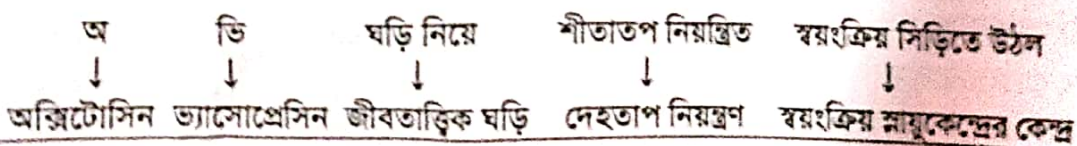 অ ভি ঘড়ি নিয়ে শীতাতপ নিয়ন্ত্রিত স্বয়ংক্রিয় সিড়িতে উঠল
↓ ↓ ↓ ↓ ↓
অক্সিটোসিন ভ্যাসোপ্রেসিন জীবতাত্ত্বিক ঘড়ি দেহতাপ নিয়ন্ত্রণ স্বয়ংক্রিয় স্নায়ুকেন্দ্রের কেন্দ্র